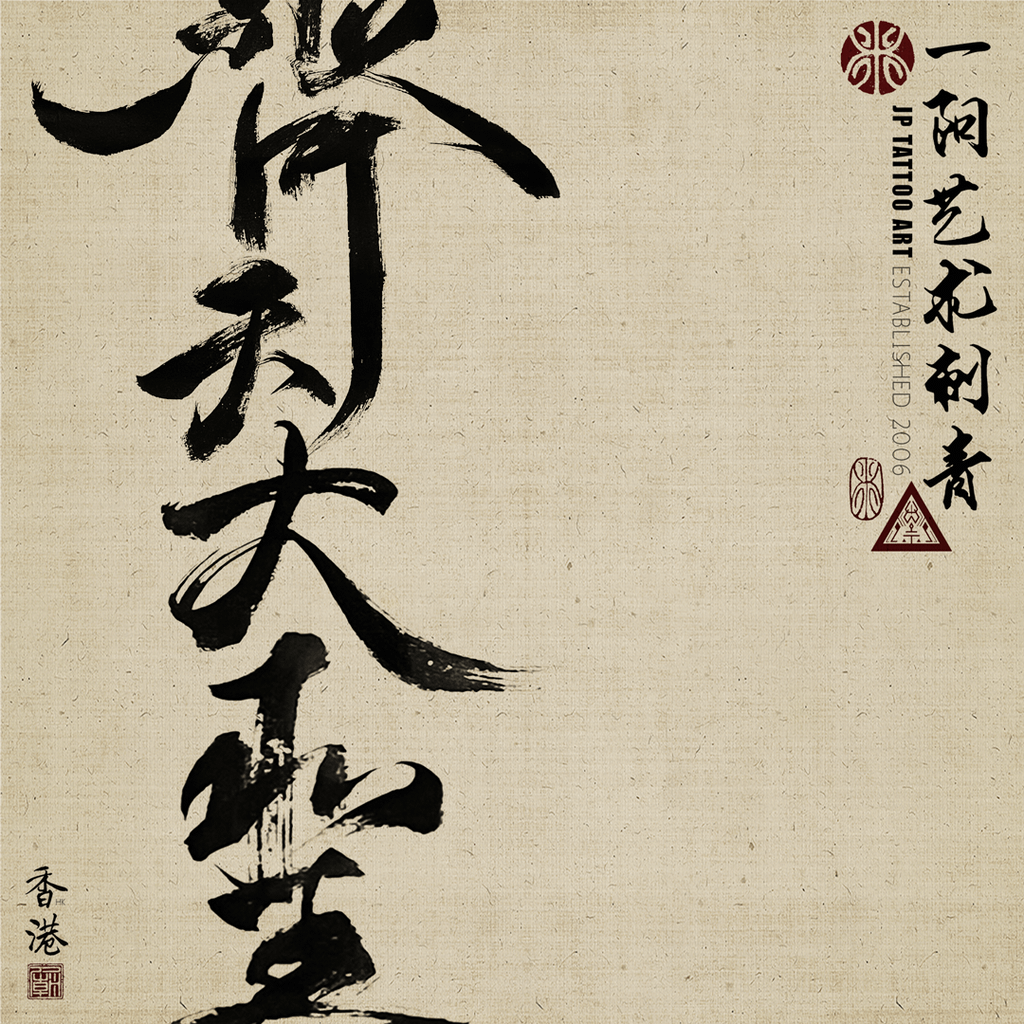 一阿艺术刺青
JP TATTOO ART ESTABLISHED 2006
齊天大聖
香港
HK